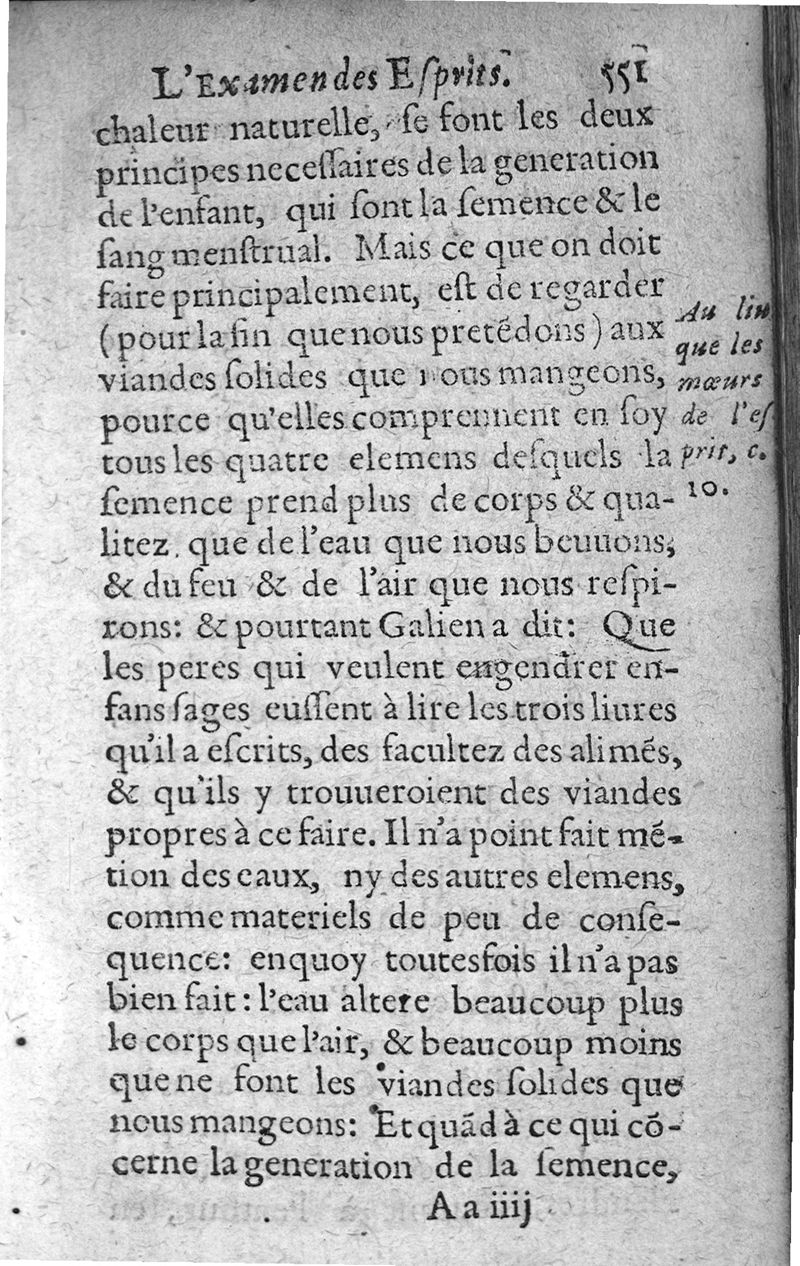 L'Examen des Eſprits. 551
chaleur naturelle, ſe font les deux
principes neceſſaires de la generation
de l'enfant, qui ſont la ſemence & le
ſang menſtrual. Mais ce que on doit
faire principalement, eſt de regarder
(pour la fin que nous pretẽdons) aux
viandes ſolides que nous mangeons,
pource qu'elles comprennent en ſoy
tous les quatre elemens deſquels la
ſemence prend plus de corps & qua-
litez, que de l'eau que nous beuuons,
& du feu & de l'air que nous reſpi-
rons: & pourtant Galien a dit: Que
les peres qui veulent engendrer en-
fans ſages euſſent à lire les trois liures
qu'il a eſcrits, des facultez des alimẽs,
& qu'ils y trouueroient des viandes
propres à ce faire. Il n'a point fait mẽ-
tion des eaux, ny des autres elemens,
comme materiels de peu de conſe-
quence: enquoy toutesfois il n'a pas
bien fait: l'eau altere beaucoup plus
le corps que l'air, & beaucoup moins
que ne font les viandes ſolides que
nous mangeons: Et quãd à ce qui cõ-
cerne la generation de la ſemence,
A a iiij
Au liu
que les
mœurs
de l'eſ
prit, c.
10.